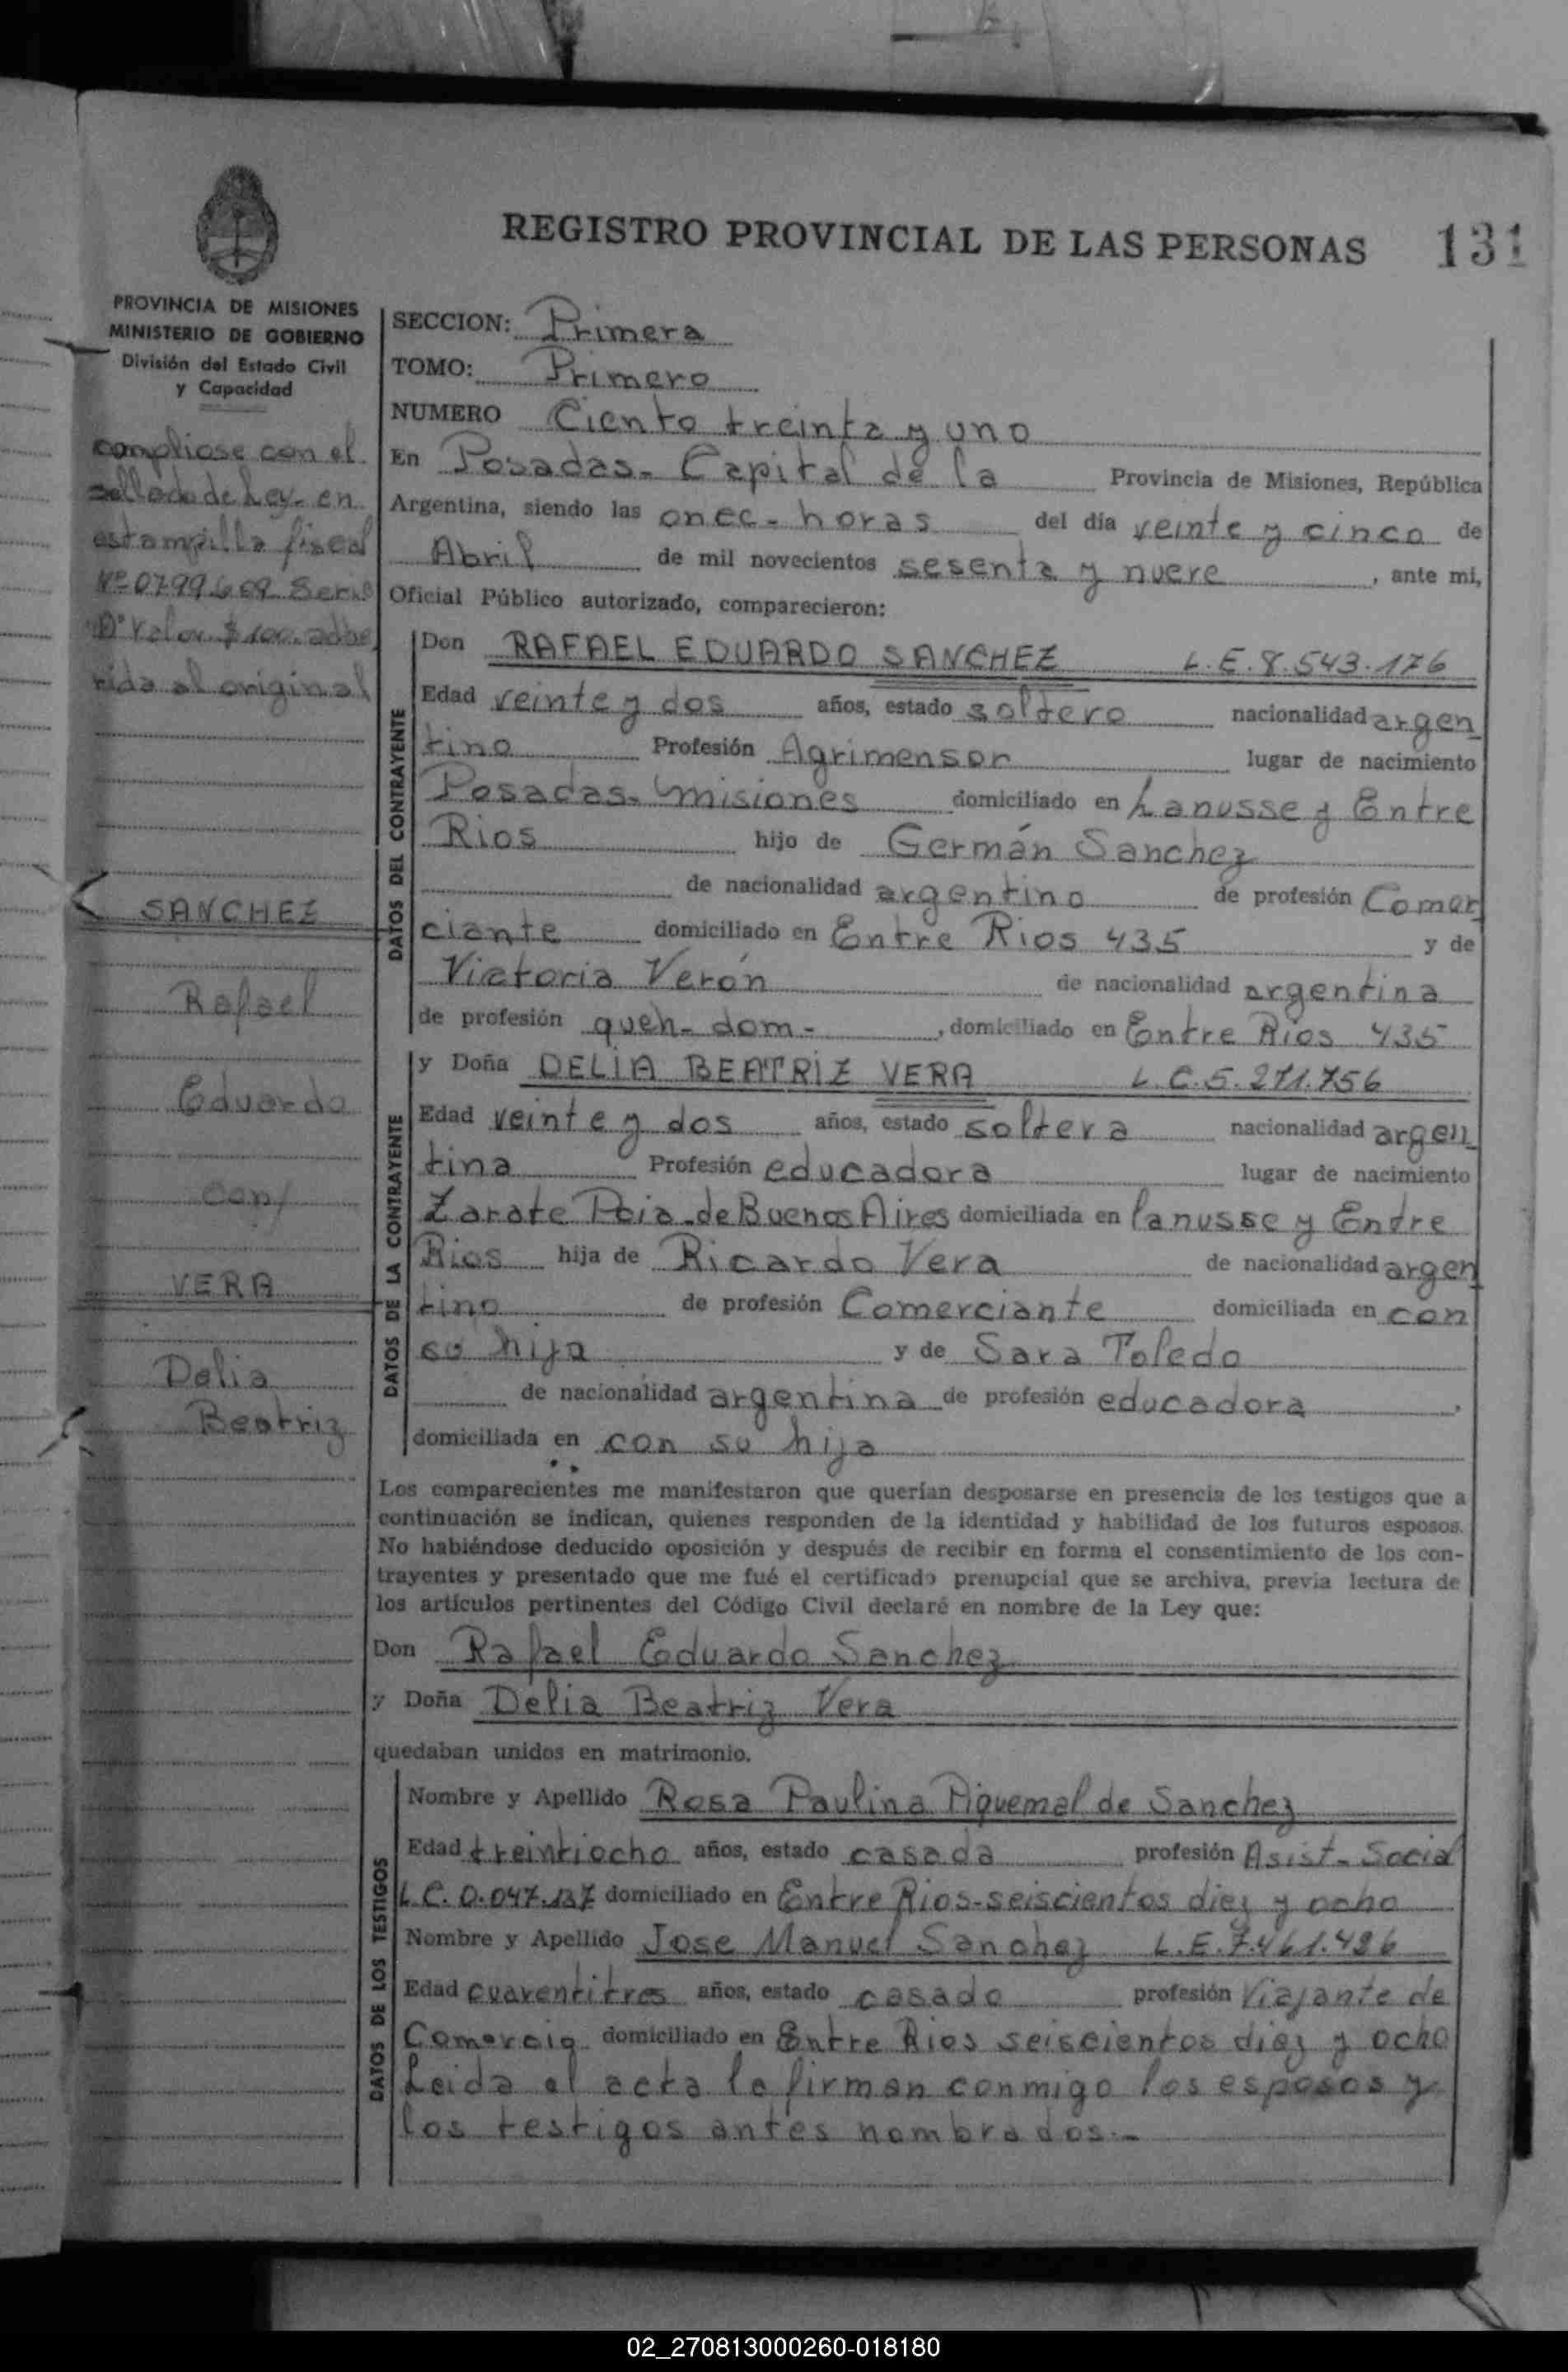 REGISTRO PROVINCIAL DE LAS PERSONAS 131
PROVINCIA DE MISIONES
MINISTERIO DE GOBIERNO
División del Estado Civil
y Capacidad
compliose con el
sellado de Ley- en
estampilla fiscal
Nº 0799669 Serie
"D" Valor $100. adhe
rida al original
SANCHEZ
Rafael
Eduardo
con/
VERA
Delia
Beatriz
SECCION: Primera
TOMO: Primero
NUMERO Ciento treinta y uno
En Posadas- Capital de la Provincia de Misiones, República
Argentina, siendo las onec- horas del día veinte y cinco de
Abril de mil novecientos sesenta y nueve, ante mi,
Oficial Público autorizado, comparecieron:
DATOS DEL CONTRAYENTE
Don RAFAEL EDUARDO SANCHEZ L.E. 8.543.176
Edad veinte y dos años, estado soltero nacionalidad argen
tino Profesión Agrimensor lugar de nacimiento
Posadas- Misiones domiciliado en Lanusse y Entre
Rios hijo de Germán Sanchez
de nacionalidad argentino de profesión Comer
ciante domiciliado en Entre Rios 435 y de
Victoria Verón de nacionalidad argentina
de profesión queh- dom-, domiciliado en Entre Rios 435
DATOS DE LA CONTRAYENTE
y Doña DELIA BEATRIZ VERA L.C. 5.271.756
Edad veinte y dos años, estado soltera nacionalidad argen
tina Profesión educadora lugar de nacimiento
Zarate Pcia- de Buenos Aires domiciliada en lanusse y Entre
Rios hija de Ricardo Vera de nacionalidad argen
tino de profesión Comerciante domiciliada en con
su hija y de Sara Toledo
de nacionalidad argentina de profesión educadora,
domiciliada en con su hija
Los comparecientes me manifestaron que querían desposarse en presencia de los testigos que a
continuación se indican, quienes responden de la identidad y habilidad de los futuros esposos.
No habiéndose deducido oposición y después de recibir en forma el consentimiento de los con-
trayentes y presentado que me fué el certificado prenupcial que se archiva, previa lectura de
los artículos pertinentes del Código Civil declaré en nombre de la Ley que:
Don Rafael Eduardo Sanchez
y Doña Delia Beatriz Vera
quedaban unidos en matrimonio.
DATOS DE LOS TESTIGOS
Nombre y Apellido Rosa Paulina Piquemal de Sanchez
Edad treintiocho años, estado casada profesión Asist- Social
L.C. 0.047.137 domiciliado en Entre Rios- seiscientos diez y ocho
Nombre y Apellido Jose Manuel Sanchez L.E. 7.461.426
Edad cuarentitres años, estado casado profesión Viajante de
Comercio domiciliado en Entre Rios seiscientos diez y ocho
Leida el acta la firman conmigo los esposos y
los testigos antes nombrados.-
02_270813000260-018180